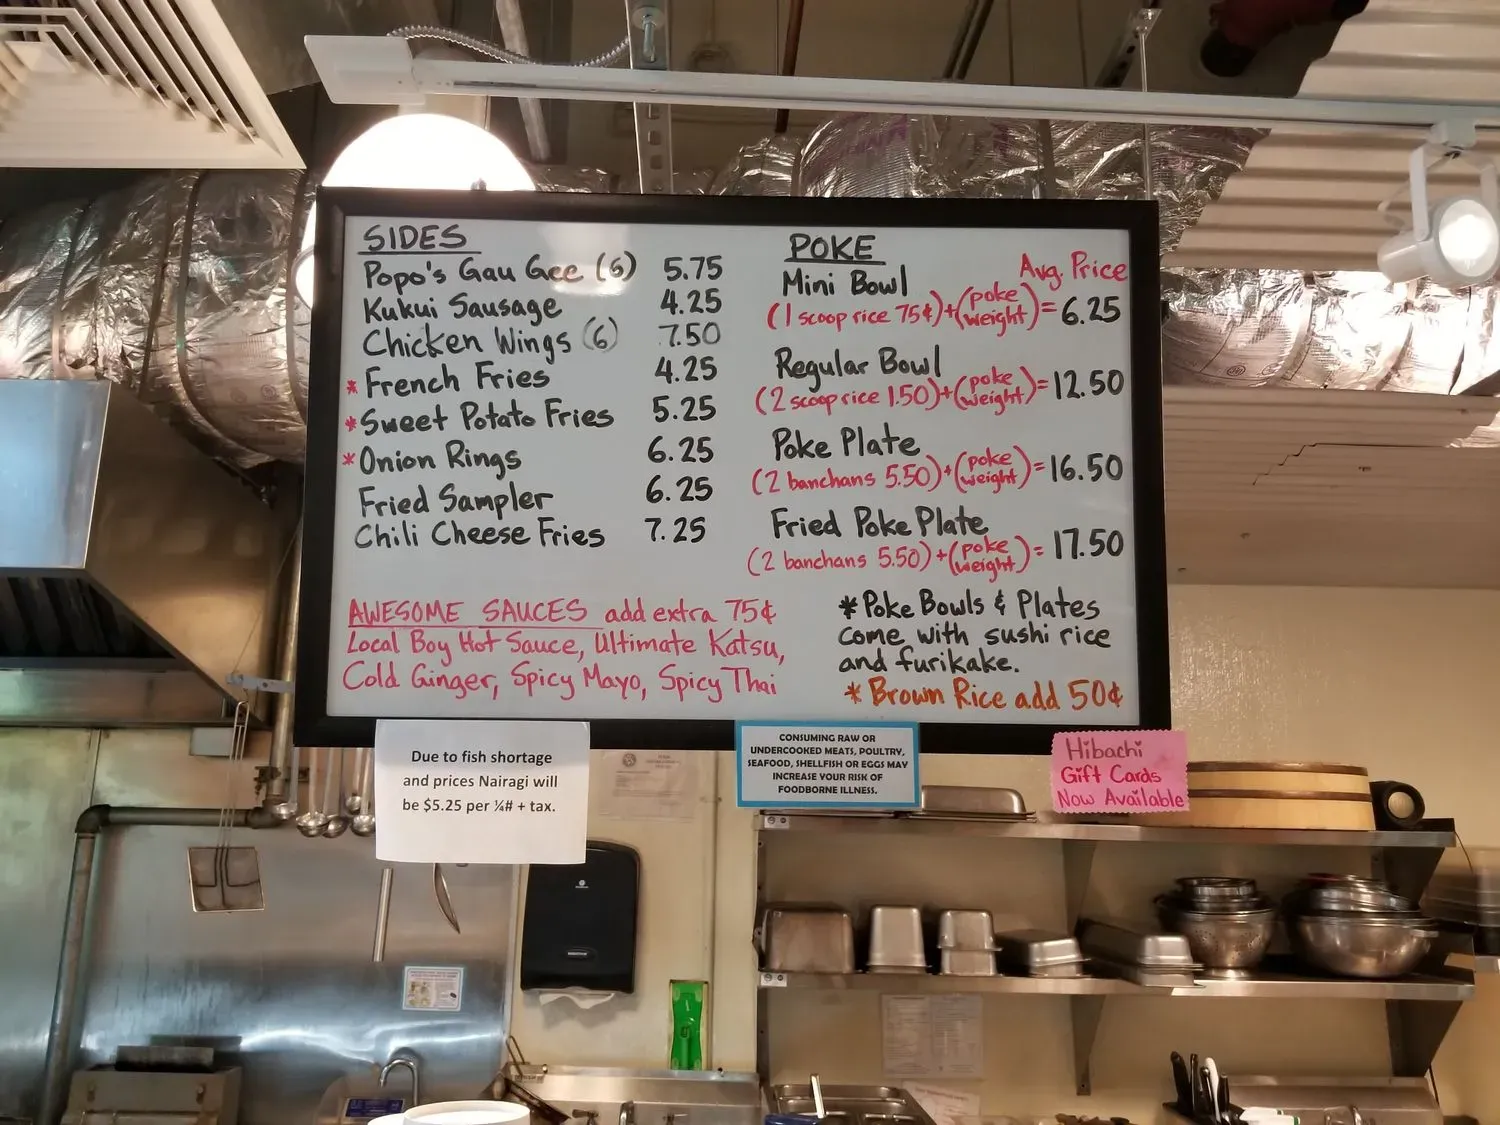 SIDES
Popo's Gau Gee (6) 5.75
Kukui Sausage 4.25
Chicken Wings (6) 7.50
* French Fries 4.25
* Sweet Potato Fries 5.25
* Onion Rings 6.25
Fried Sampler 6.25
Chili Cheese Fries 7.25
AWESOME SAUCES add extra 75¢
Local Boy Hot Sauce, Ultimate Katsu,
Cold Ginger, Spicy Mayo, Spicy Thai
POKE
Avg. Price
Mini Bowl
(1 scoop rice 75¢)+(poke weight)= 6.25
Regular Bowl
(2 scoop rice 1.50)+(poke weight)= 12.50
Poke Plate
(2 banchans 5.50)+(poke weight)= 16.50
Fried Poke Plate
(2 banchans 5.50)+(poke weight)= 17.50
* Poke Bowls & Plates
come with sushi rice
and furikake.
* Brown Rice add 50¢
Due to fish shortage
and prices Nairagi will
be $5.25 per ¼# + tax.
CONSUMING RAW OR
UNDERCOOKED MEATS, POULTRY,
SEAFOOD, SHELLFISH OR EGGS MAY
INCREASE YOUR RISK OF
FOODBORNE ILLNESS.
Hibachi
Gift Cards
Now Available